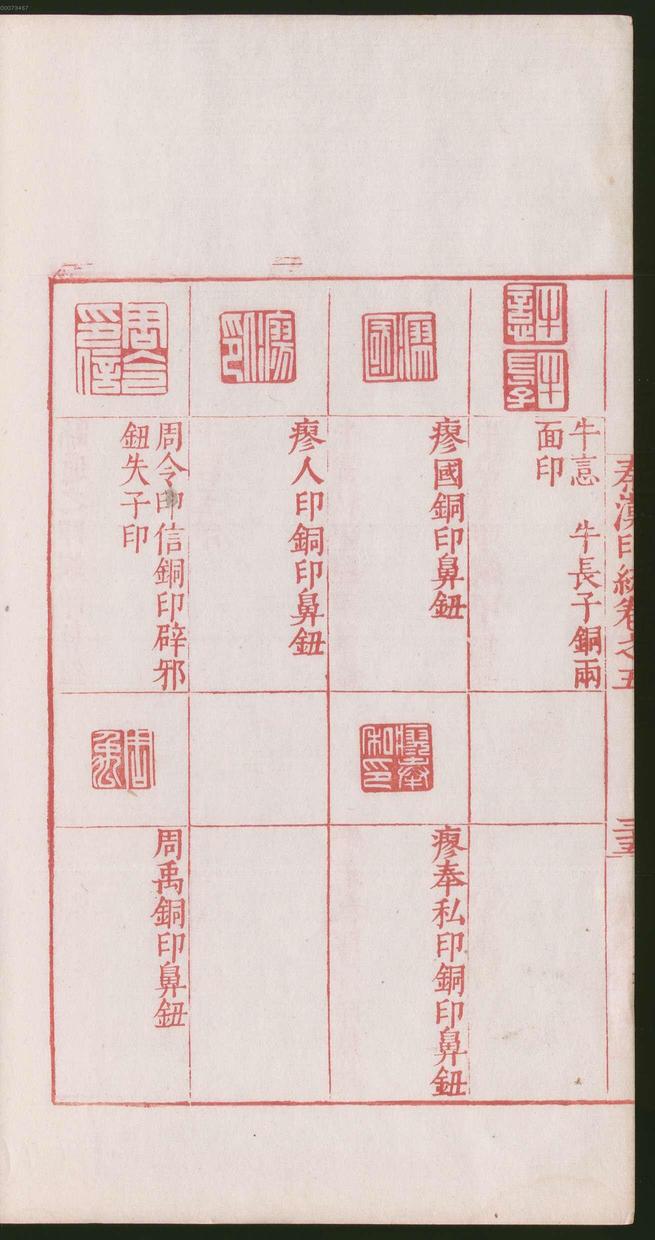 00073467
秦漢印統卷之五
三五
牛意　牛長子銅兩
面印
廖國銅印鼻鈕
廖奉私印銅印鼻鈕
廖人印銅印鼻鈕
周令印信銅印辟邪
鈕失子印
周禹銅印鼻鈕